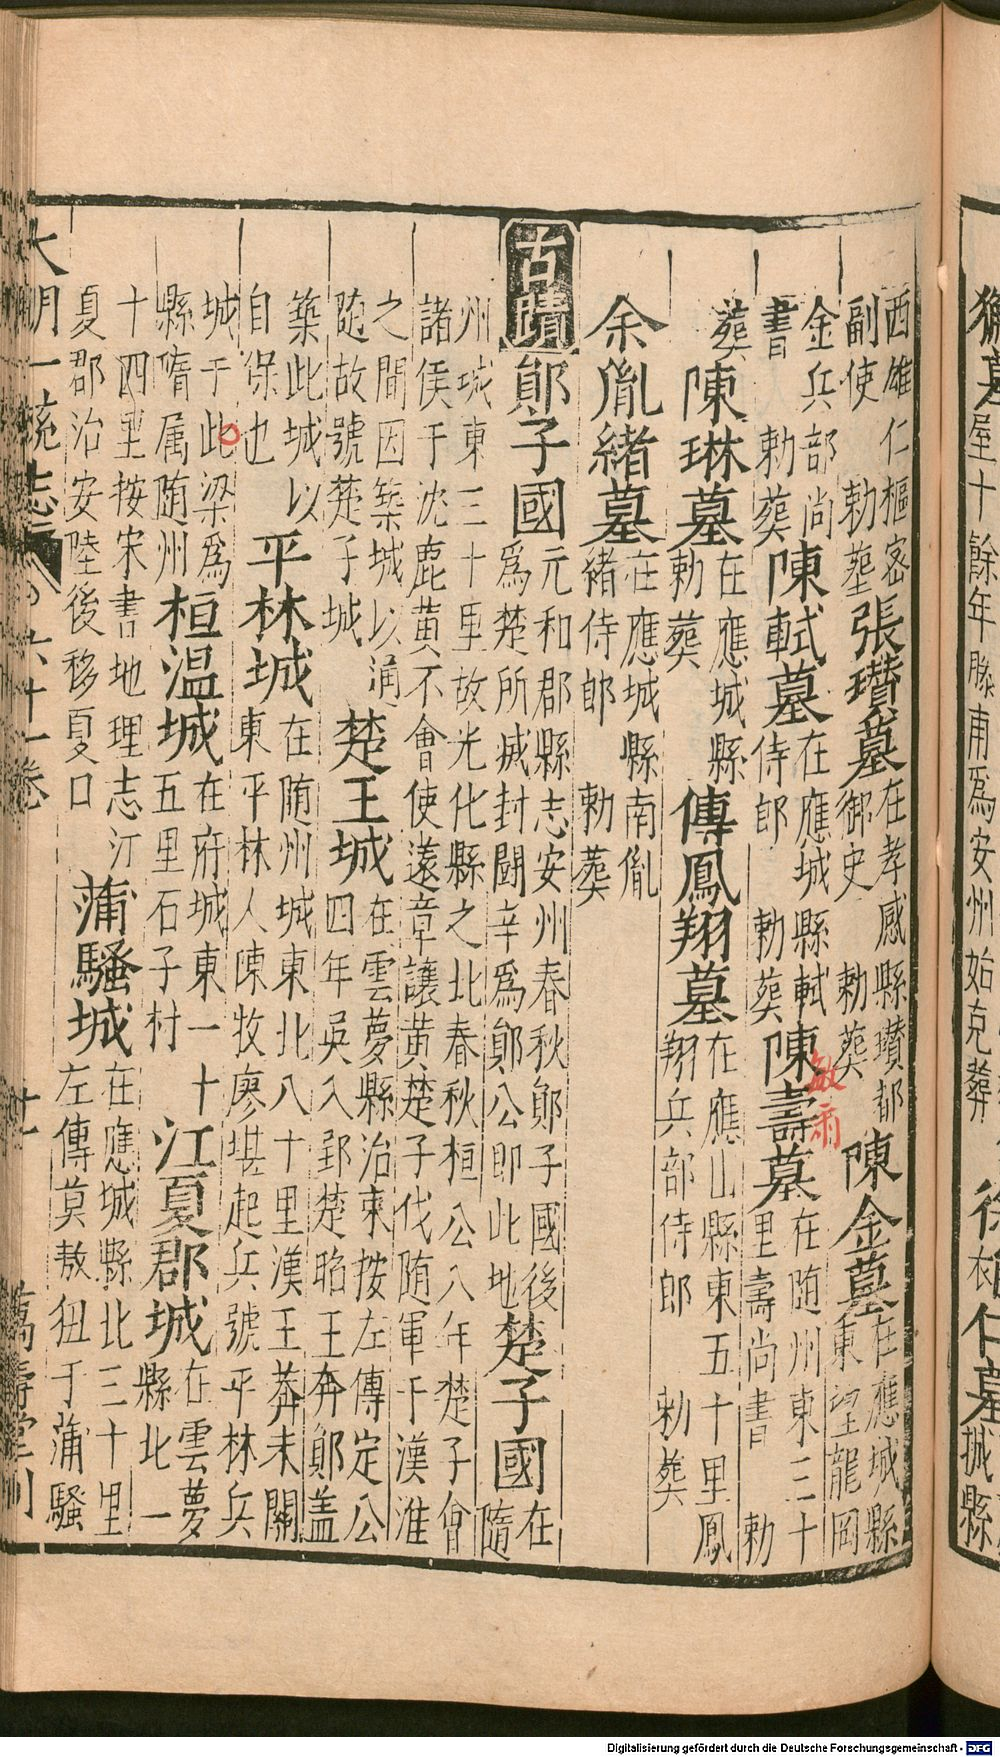 西雄仁樞密
副使　勅塟張瓚墓在孝感縣瓚都
御史　勅葬陳金墓在應城縣
東望龍岡
金兵部尚
書　勅葬陳軾墓在應城縣軾
侍郎　勅葬陳壽墓在随州東三十
里壽尚書　勅
葬陳琳墓在應城縣
勅葬傅鳳翔墓在應山縣東五十里鳳
翔兵部侍郎　勅葬
余胤緒墓在應城縣南胤
緒侍郎　勅葬
古蹟
鄖子國元和郡縣志安州春秋鄖子國後
為楚所滅封鬬辛為鄖公即此地楚子國在
隨
州城東三十里故光化縣之北春秋桓公八年楚子會
諸侯于沈鹿黄不會使薳章讓黄楚子伐随軍于漢淮
之間因築城以逼
随故號楚子城楚王城在雲夢縣治東按左傳定公
四年吳入郢楚昭王奔鄖盖
築此城以
自保也平林城在随州城東北八十里漢王莽末關
東平林人陳牧廖堪起兵號平林兵
城于此梁為
縣隋属随州桓温城在府城東一十
五里石子村江夏郡城在雲夢
縣北一
十四里按宋書地理志汀
夏郡治安陸後移夏口蒲騷城在應城縣北三十里
左傳莫敖狃于蒲騷
大明一統志　六十一卷　萬壽堂刊
敏肅
屋十餘年滕甫為安州始克葬
仁墓
城縣
Digitalisierung gefördert durch die Deutsche Forschungsgemeinschaft - DFG